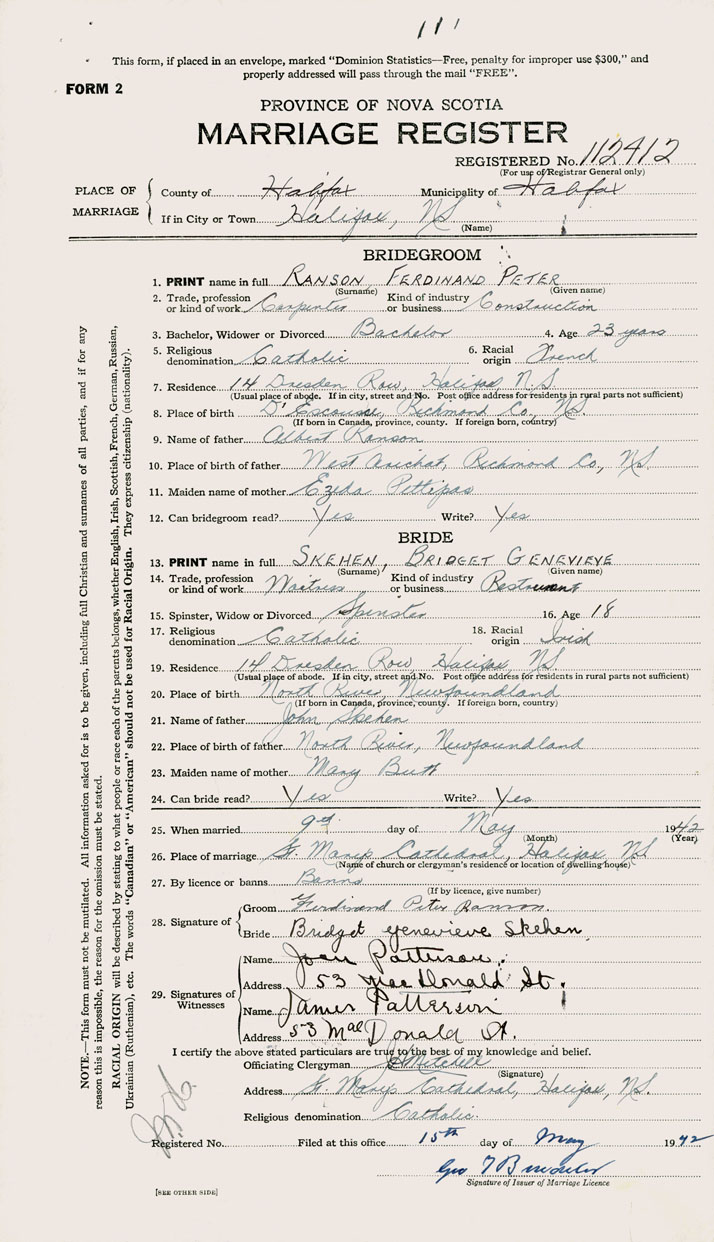 111
This form, if placed in an envelope, marked "Dominion Statistics—Free, penalty for improper use $300," and
properly addressed will pass through the mail "FREE".
FORM 2
PROVINCE OF NOVA SCOTIA
MARRIAGE REGISTER
REGISTERED No. 112412
(For use of Registrar General only)
PLACE OF MARRIAGE
County of Halifax Municipality of Halifax
If in City or Town Halifax, NS
(Name)
BRIDEGROOM
1. PRINT name in full RANSON, FERDINAND PETER
(Surname) (Given name)
2. Trade, profession or kind of work Carpenter Kind of industry or business Construction
3. Bachelor, Widower or Divorced Bachelor 4. Age 23 years
5. Religious denomination Catholic 6. Racial origin French
7. Residence 14 Dresden Row, Halifax, N.S.
(Usual place of abode. If in city, street and No. Post office address for residents in rural parts not sufficient)
8. Place of birth D'Escousse, Richmond Co., NS.
(If born in Canada, province, county. If foreign born, country)
9. Name of father Albert Ranson
10. Place of birth of father West Arichat, Richmond Co., NS.
11. Maiden name of mother Ezeda Pettipas
12. Can bridegroom read? Yes Write? Yes
BRIDE
13. PRINT name in full SKEHEN, BRIDGET GENEVIEVE
(Surname) (Given name)
14. Trade, profession or kind of work Waitress Kind of industry or business Restaurant
15. Spinster, Widow or Divorced Spinster 16. Age 18
17. Religious denomination Catholic 18. Racial origin Irish
19. Residence 14 Dresden Row, Halifax, NS.
(Usual place of abode. If in city, street and No. Post office address for residents in rural parts not sufficient)
20. Place of birth North River, Newfoundland
(If born in Canada, province, county. If foreign born, country)
21. Name of father John Skehen
22. Place of birth of father North River, Newfoundland
23. Maiden name of mother Mary Butt
24. Can bride read? Yes Write? Yes
25. When married 9th day of May 1942
(Month) (Year)
26. Place of marriage St. Mary's Cathedral, Halifax, NS
(Name of church or clergyman's residence or location of dwelling house)
27. By licence or banns Banns
(If by licence, give number)
28. Signature of
Groom Ferdinand Peter Ranson.
Bride Bridget Genevieve Skehen
29. Signatures of Witnesses
Name Joan Patterson
Address 53 MacDonald St.
Name James Patterson
Address 53 MacDonald St.
I certify the above stated particulars are true to the best of my knowledge and belief.
Officiating Clergyman Mitchell
(Signature)
Address St. Mary's Cathedral, Halifax, NS.
Religious denomination Catholic.
Registered No. Filed at this office 15th day of May 1942
Geo
Signature of Issuer of Marriage Licence
[SEE OTHER SIDE]
NOTE.—This form must not be mutilated. All information asked for is to be given, including full Christian and surnames of all parties, and if for any
reason this is impossible, the reason for the omission must be stated.
RACIAL ORIGIN will be described by stating to what people or race each of the parents belongs, whether English, Irish, Scottish, French, German, Russian,
Ukrainian (Ruthenian), etc. The words "Canadian" or "American" should not be used for Racial Origin. They express citizenship (nationality).